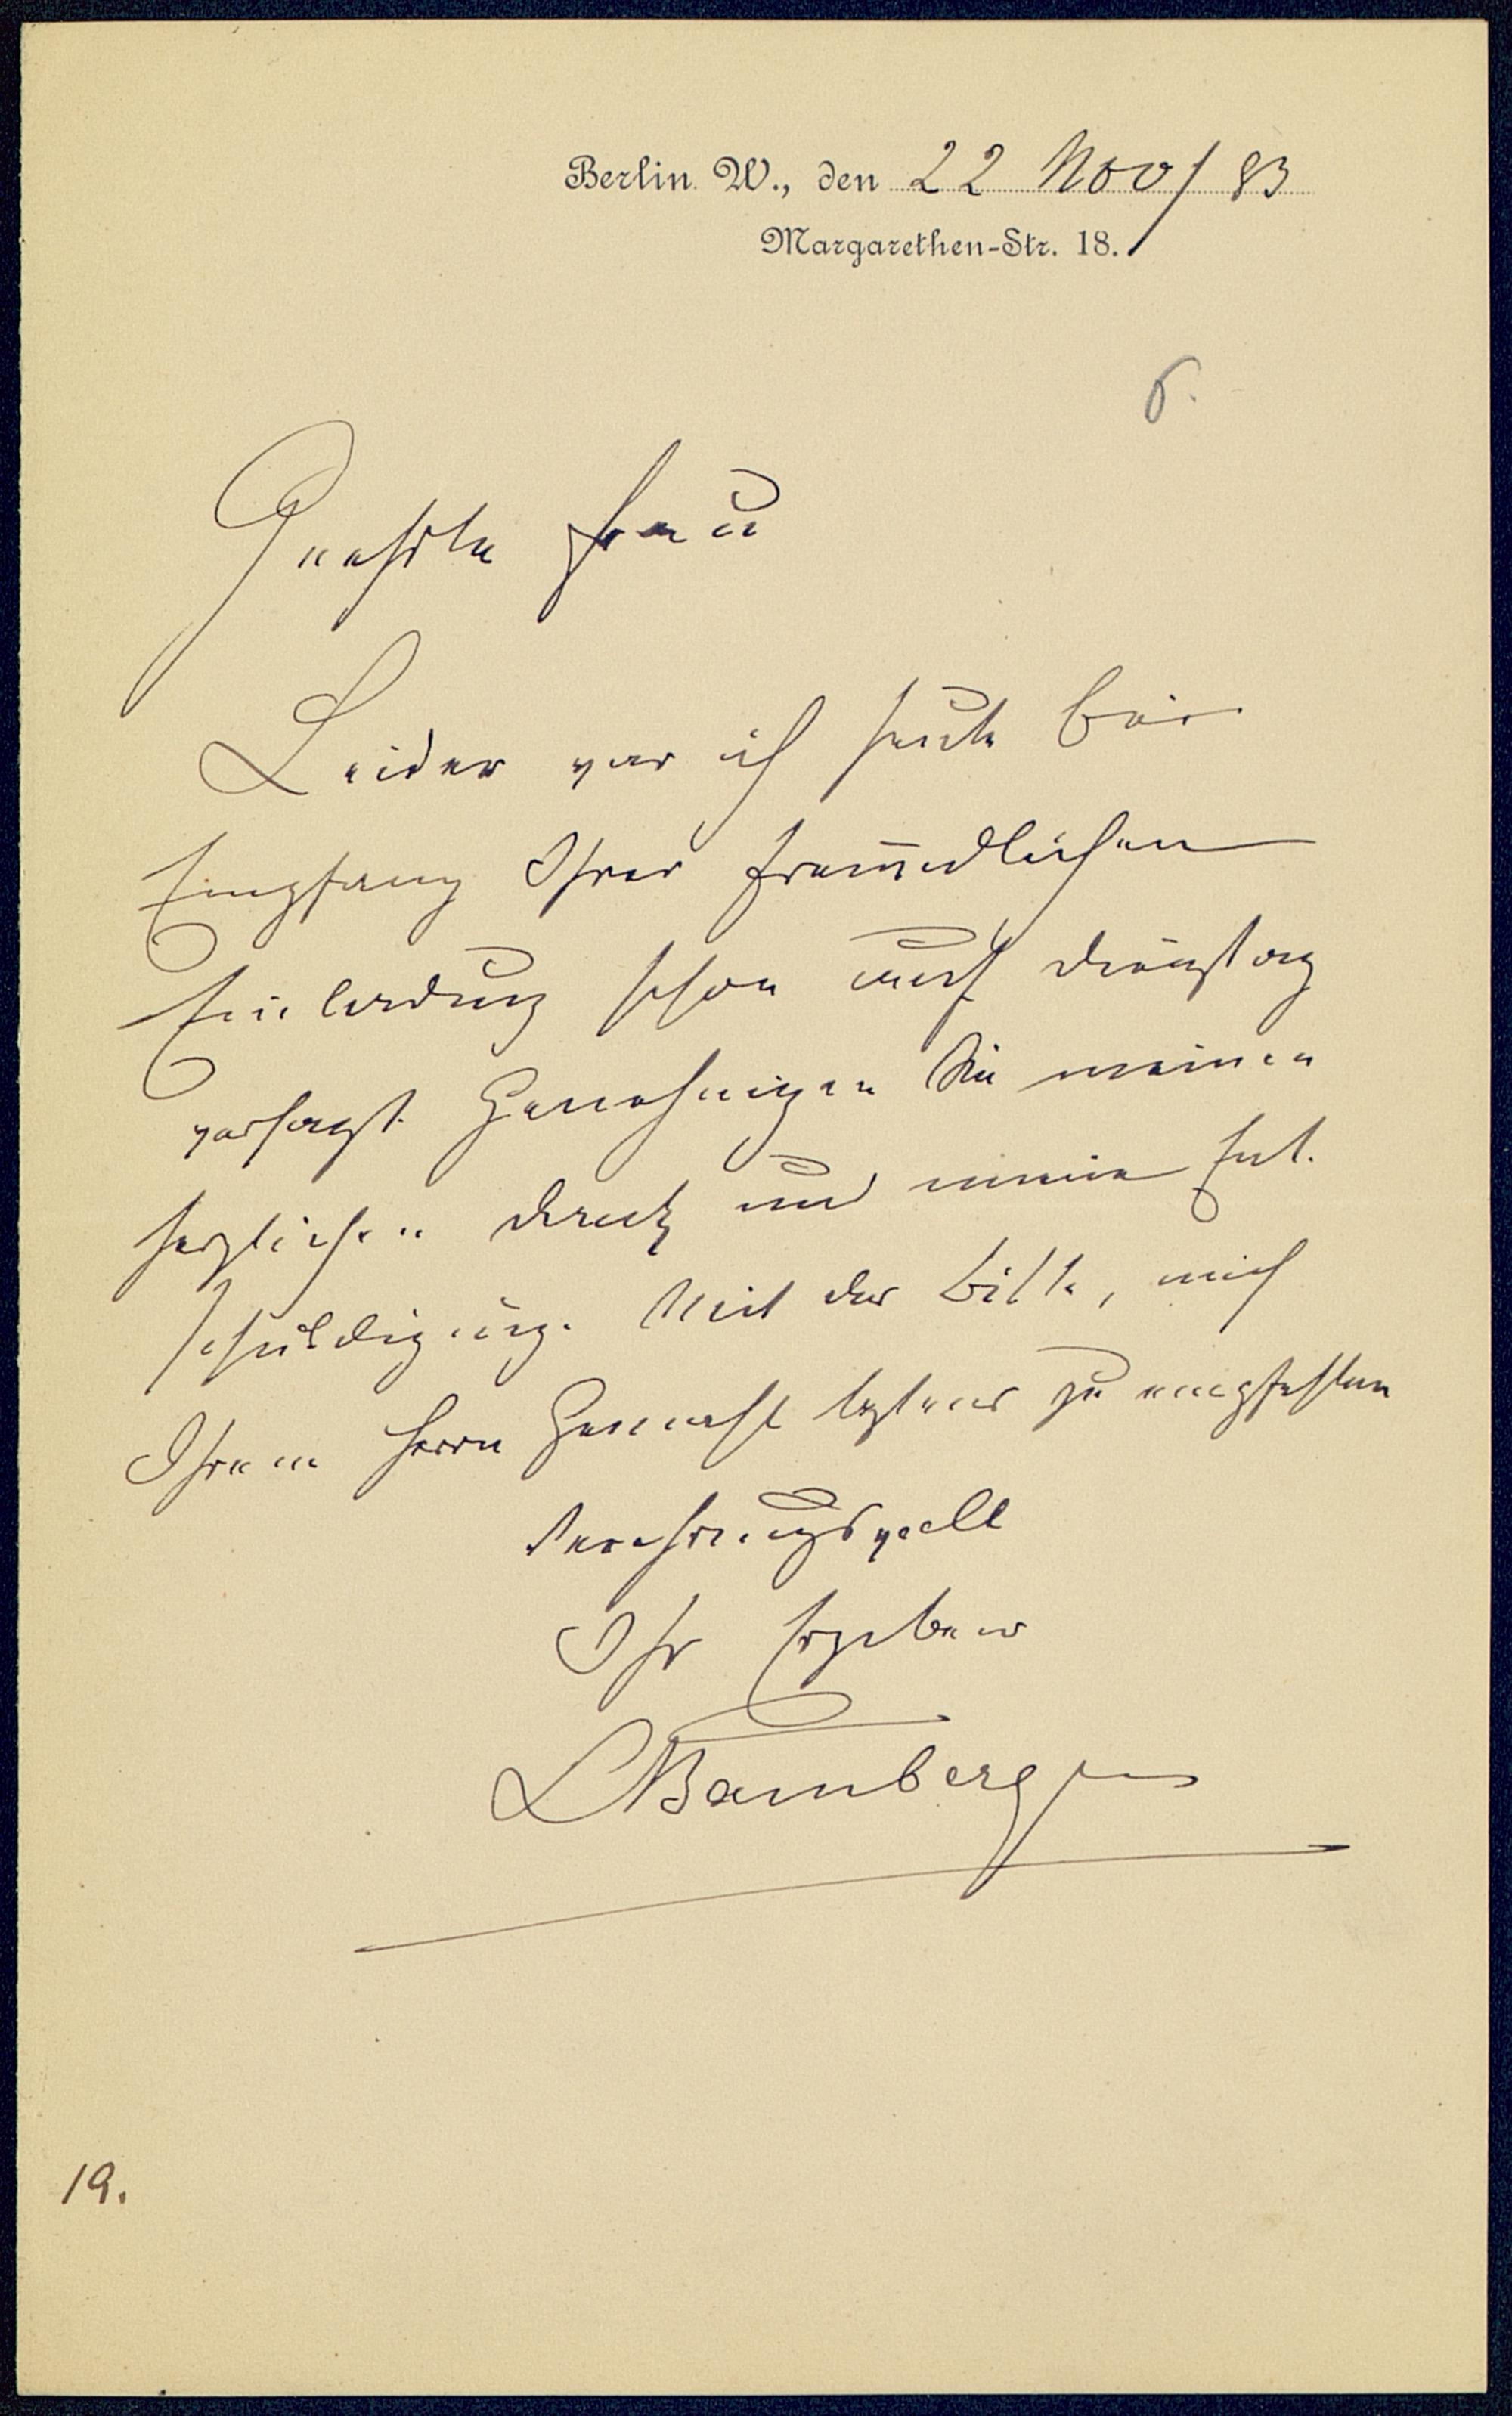 Berlin W., den 22 Nov/83
Margarethen-Str. 18.
6.
Geehrte Frau
Leider war ich heute bei
Empfang Ihrer freundlichen
Einladung schon auf Dienstag
versagt. Genehmigen Sie meinen
herzlichen Dank und meine Ent-
schuldigung. Mit der Bitte, mich
Ihrem Herrn Gemahl bestens zu empfehlen
Verehrungsvoll
Ihr Ergebener
LBamberger
19.